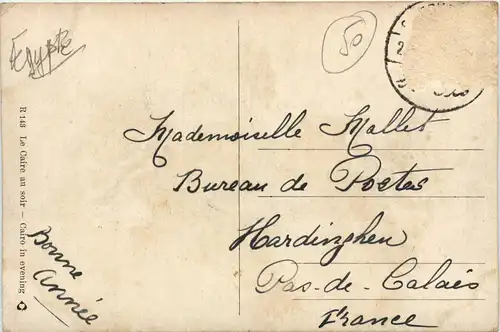 Egypte
50
R 143 Le Caire au soir — Cairo in evening
Bonne
année
Mademoiselle Mallet
Bureau de Postes
Hardinghen
Pas-de-Calais
France